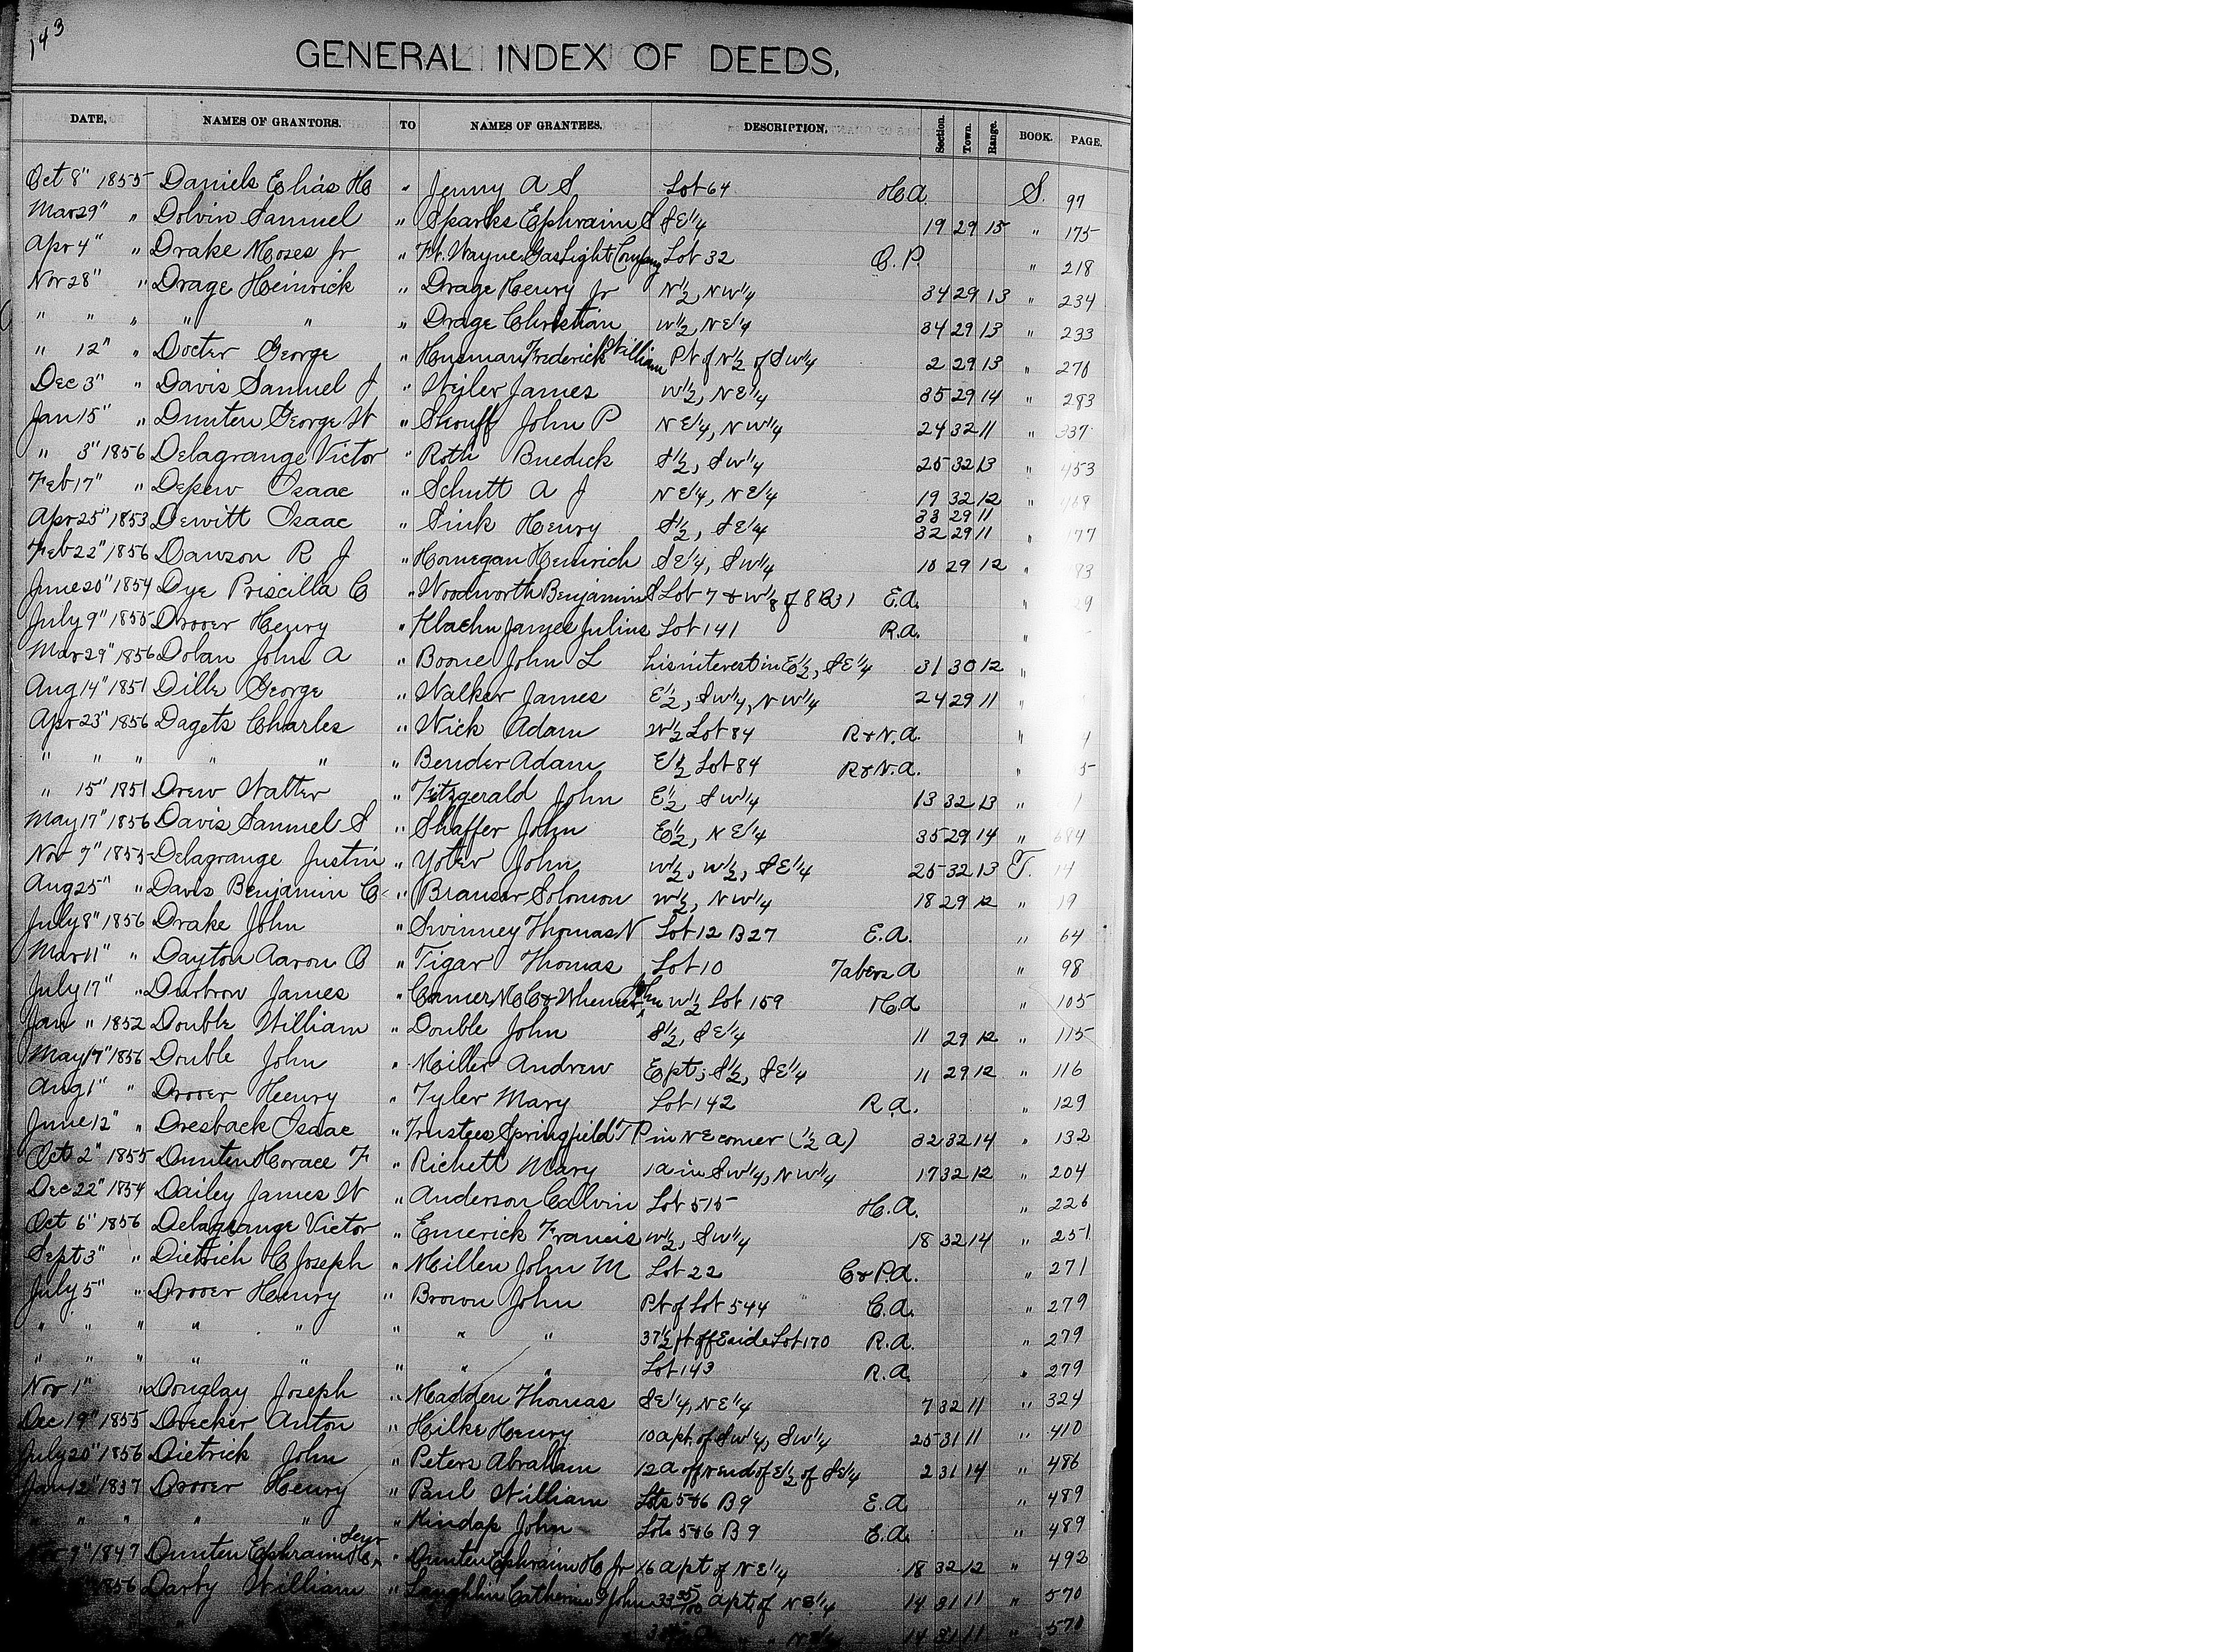 143
GENERAL INDEX OF DEEDS,
DATE, NAMES OF GRANTORS. TO NAMES OF GRANTEES. DESCRIPTION, Section. Town. Range. BOOK. PAGE.
Oct 8" 1855 Daniels Elias H " Jenny A S Lot 64 H.A. S. 97
Mar 29" " Dolvin Samuel " Sparks Ephraim S SE1/4 19 29 15 " 175
Apr 4" " Drake Moses Jr " Ft. Wayne Gas Light Company Lot 32 O.P. " 218
Nov 28" " Drage Heinrick " Drage Henry Jr N1/2, NW1/4 34 29 13 " 234
" " " " " " Drage Christian W1/2, NE1/4 34 29 13 " 233
" 12" " Docter George " Husman Frederick William Pt of N1/2 of SW1/4 2 29 13 " 270
Dec 3" " Davis Samuel J " Wyler James W1/2, NE1/4 35 29 14 " 283
Jan 15" " Dunten George W " Shouff John P NE1/4, NW1/4 24 32 11 " 337
" 3" 1856 Delagrange Victor " Roth Buedick S1/2, SW1/4 25 32 13 " 453
Feb 17" " Depew Isaac " Schutt A J NE1/4, NE1/4 19 32 12 " 468
Apr 25" 1853 Dewitt Isaac " Sink Henry S1/2, SE1/4 33 29 11
32 29 11 " 77
Feb 22" 1856 Dawson R J " Homegan Heinrich SE1/4, SW1/4 10 29 12 " 83
June 20" 1854 Dye Priscilla C " Woodworth Benjamin S Lot 7 & W1/8 of 8 B31 E.A. " 29
July 9" 1855 Drover Henry " Klaehn James Julius Lot 141 R.A. "
Mar 29" 1856 Dolan John A " Boone John L his interest in E1/2, SE1/4 31 30 12 "
Aug 14" 1851 Dille George " Walker James E1/2, SW1/4, NW1/4 24 29 11 "
Apr 23" 1856 Dagets Charles " Nick Adam W1/2 Lot 84 R&N.A. " 4
" " " " " " Bender Adam E1/2 Lot 84 R&N.A. " 5
" 15" 1851 Drew Walter " Fitzgerald John E1/2, SW1/4 13 32 13 "
May 17" 1856 Davis Samuel S " Shaffer John E1/2, NE1/4 35 29 14 " 684
Nov 7" 1855 Delagrange Justin " Yoter John W1/2, W1/2, SE1/4 25 32 13 T. 14
Aug 25" " Davis Benjamin C " Brauser Solomon W1/2, NW1/4 18 29 12 " 19
July 8" 1856 Drake John " Swinney Thomas W Lot 12 B27 E.A. " 64
Mar 11" " Dayton Aaron O " Tigar Thomas Lot 10 Tabers A " 98
July 17" " Durbrow James " Comer M C & John W1/2 Lot 159 H.A " 105
Jan " 1852 Double William " Double John S1/2, SE1/4 11 29 12 " 115
May 17" 1856 Double John " Miller Andrew E pt, S1/2, SE1/4 11 29 12 " 116
Aug 1" " Drover Henry " Tyler Mary Lot 142 R.A. " 129
June 12" " Dresback Isaac " Trustees Springfield TP in NE corner (1/2 A) 32 32 14 " 132
Oct 2" 1855 Dunten Horace F " Richett Mary 1a in SW1/4, NW1/4 17 32 12 " 204
Dec 22" 1854 Dailey James W " Anderson Calvin Lot 515 H.A. " 226
Oct 6" 1856 Delagrange Victor " Emerick Francis W1/2, SW1/4 18 32 14 " 251
Sept 3" " Dietrich H Joseph " Millen John M Lot 22 C&P.A. " 271
July 5" " Drover Henry " Brown John Pt of Lot 544 C.A. " 279
" " " " " " " " 37 1/2 ft off E side Lot 170 R.A. " 279
" " " " " " " " Lot 143 R.A. " 279
Nov 1" " Douglay Joseph " Madden Thomas SE1/4, NE1/4 7 32 11 " 324
Dec 19" 1855 Drecker Anton " Hilke Henry 10a pt. of SW1/4, SW1/4 25 31 11 " 410
July 20" 1856 Dietrick John " Peters Abraham 12a off N end of E1/2 of SE1/4 2 31 14 " 486
Jan 12" 1837 Drover Henry " Paul William Lots 5&6 B9 E.A. " 489
" " " " " " Kindap John Lots 5&6 B9 E.A. " 489
Nov 9" 1847 Dunten Ephraim H Senr " Dunten Ephraim H Jr 16 a pt of NE1/4 18 32 12 " 492
1856 Darby William " Laughlin Catherine & John 33 25/100 a pt. of NE1/4 14 31 11 " 570
14 31 11 " 570